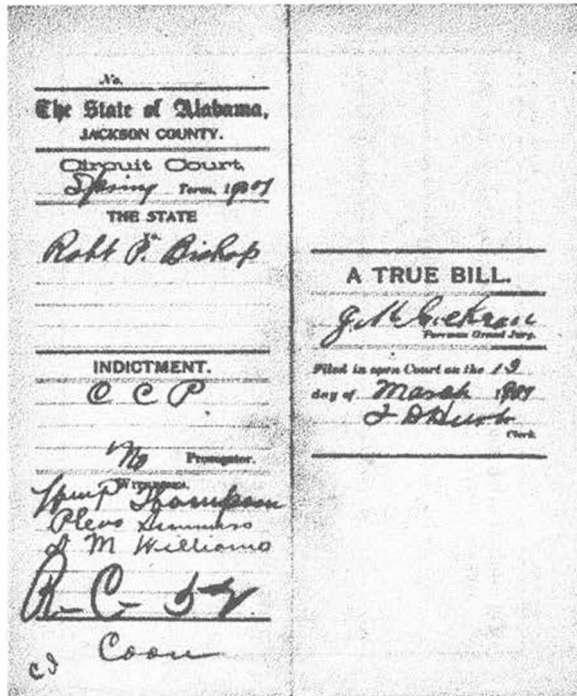 No.
The State of Alabama,
JACKSON COUNTY.
Circuit Court,
Spring Term, 1907
THE STATE
vs.
Robt P. Bishop
INDICTMENT.
C C P
No Prosecutor.
Witnesses.
Thompson
Pleas Simmons
J M Williams
R-C- 52
Coon
A TRUE BILL.
Foreman Grand Jury.
Filed in open Court on the 13
day of March 1907
Clerk.